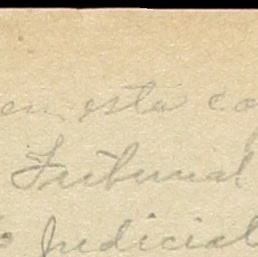 en esta co
Tribunal
o judicial